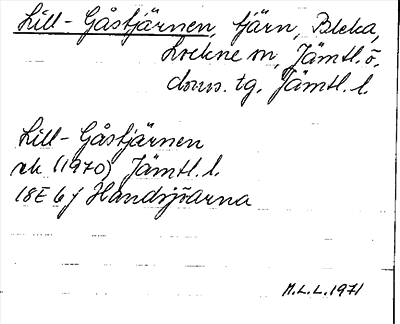 Lill-Gåstjärnen, tjärn, Bleka,
Lockne sn, Jämtl. ö.
doms. tg. Jämtl. l.
Lill-Gåstjärnen
ek (1970) Jämtl. l.
18E 6f Handsjöarna
M.L.L. 1971